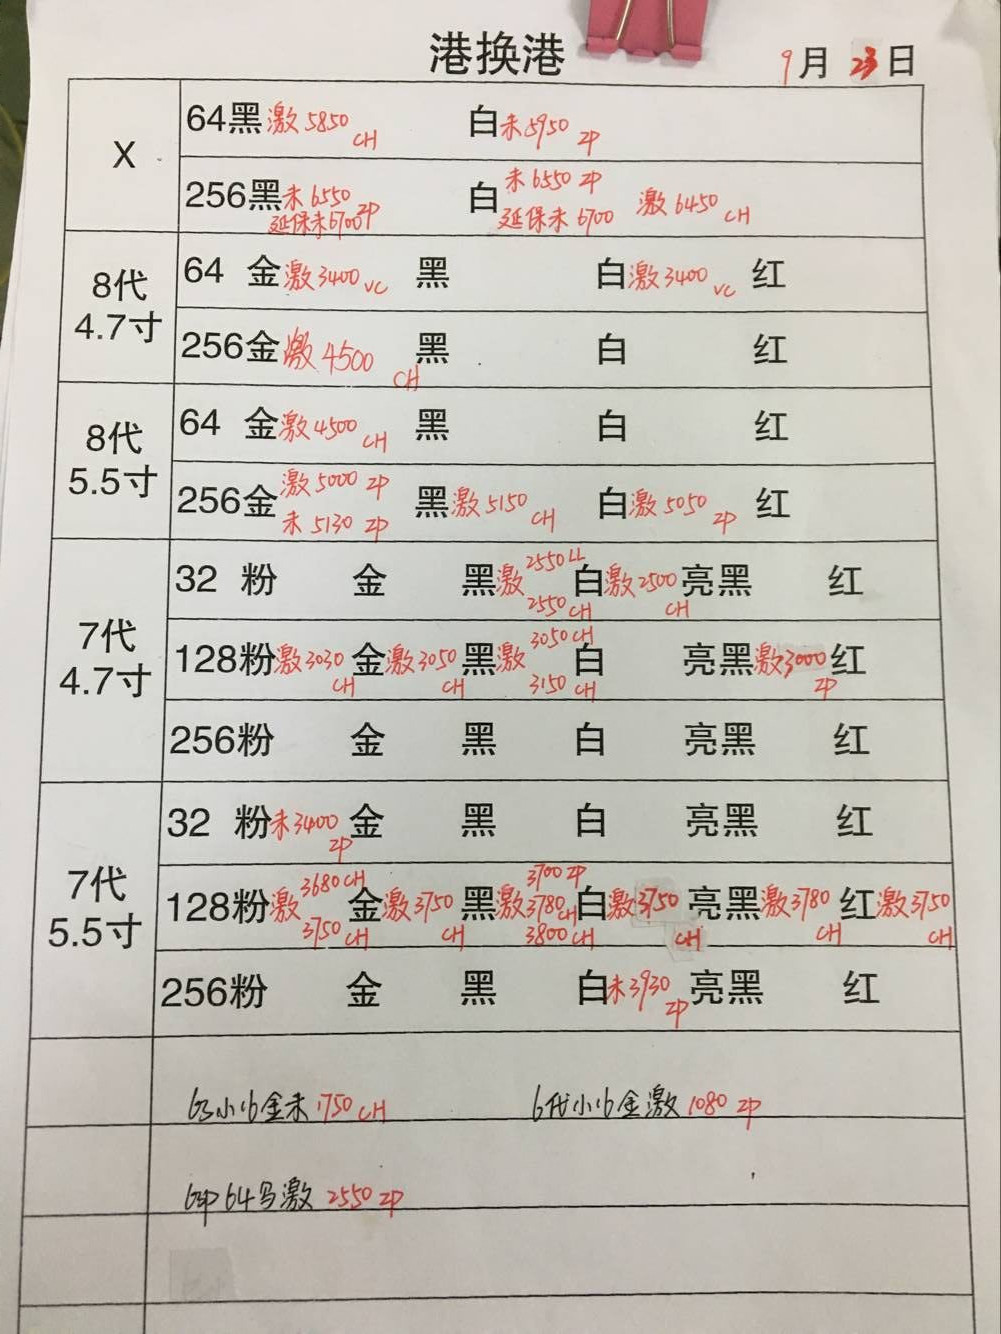 港换港
9月23日
X
64黑激5850 CH 白未5950 ZP
256黑未6550 ZP 延保未6700 白未6550 ZP 延保未6700 激6450 CH
8代 4.7寸
64 金激3400 VC 黑 白激3400 VC 红
256金激4500 CH 黑 白 红
8代 5.5寸
64 金激4500 CH 黑 白 红
256金激5000 ZP 未5130 ZP 黑激5150 CH 白激5050 ZP 红
7代 4.7寸
32 粉 金 黑激2550 LL 2550 CH 白激2500 CH 亮黑 红
128粉激3030 CH 金激3050 CH 黑激3050 CH 3150 CH 白 亮黑激3000 ZP 红
256粉 金 黑 白 亮黑 红
7代 5.5寸
32 粉未3400 ZP 金 黑 白 亮黑 红
128粉激3680 CH 3750 CH 金激3750 CH 黑激3700 ZP 3780 CH 3800 CH 白激3750 CH 亮黑激3780 CH 红激3750 CH
256粉 金 黑 白未3930 ZP 亮黑 红
小16金未1750 CH 6代小16金激1080 ZP
64 激2550 ZP